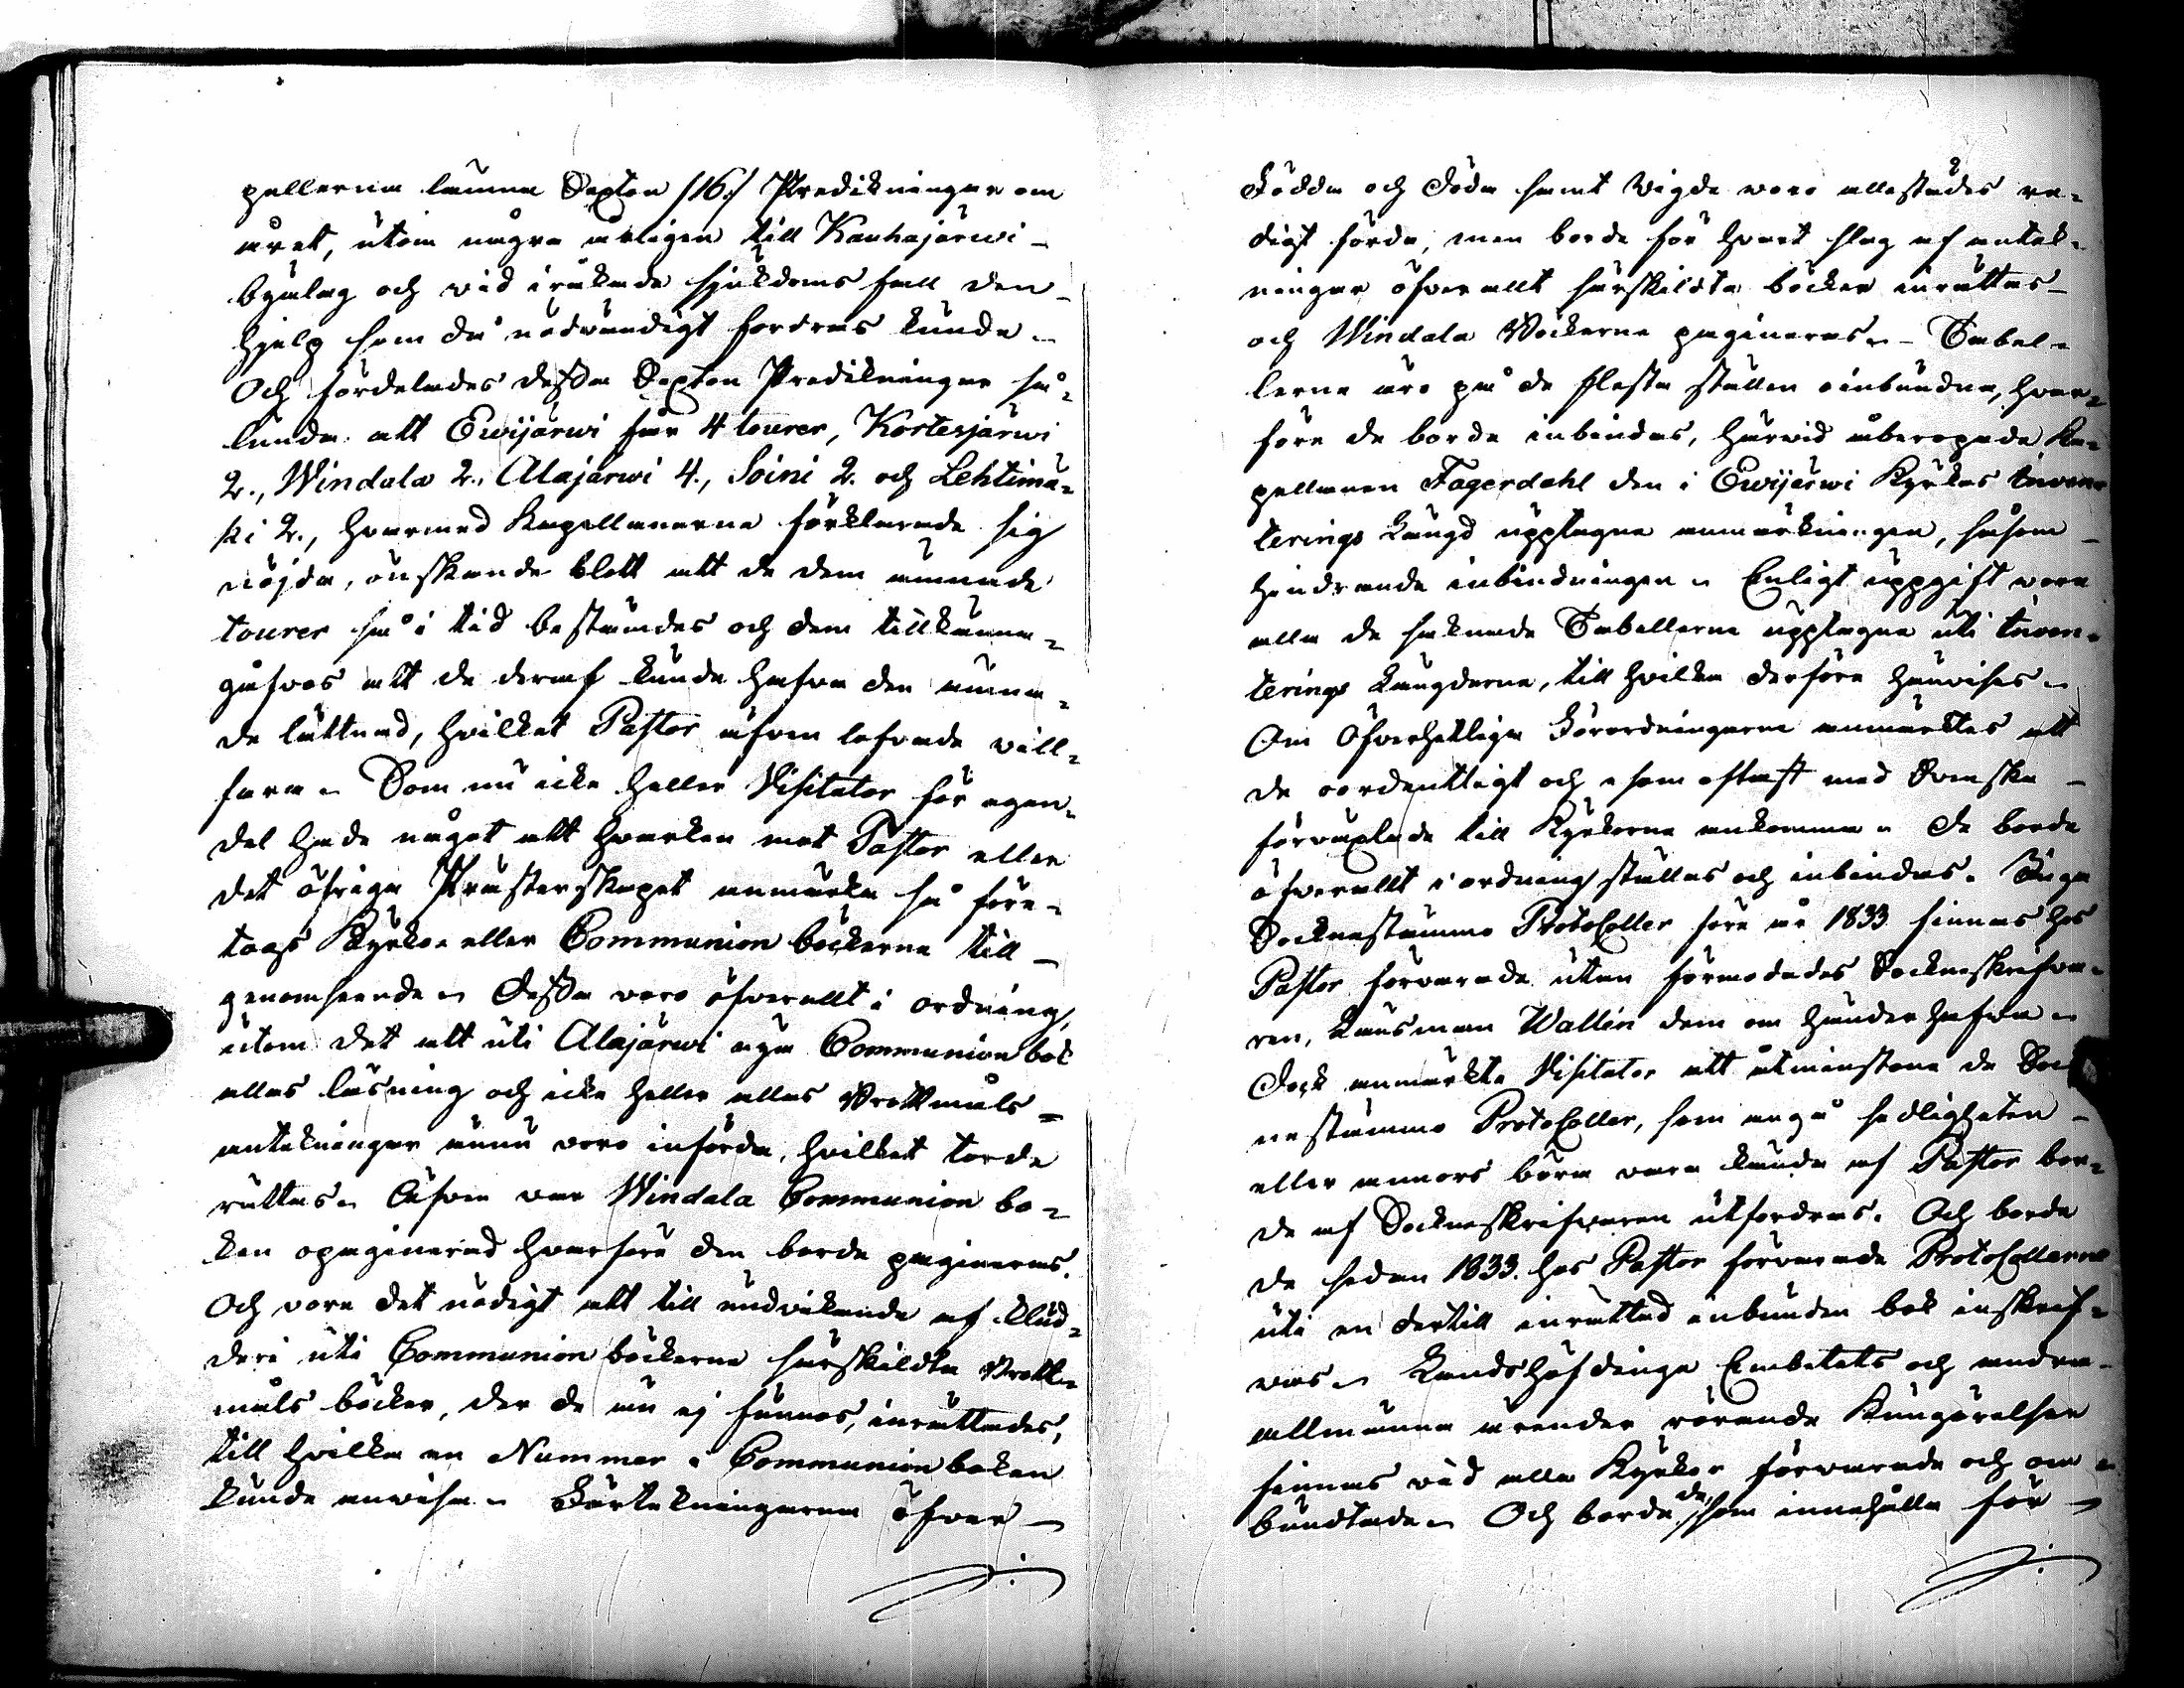 pellerna lemna Sexton /16./ Predikningar om
året, utom några årligen till Kauhajärwi
byalag och vid iråkade sjukdoms fall den
hjelp som då nödvändigt fordras kunde.
Och fördelades dessa Sexton Predikningar så-
lunda: att Ewijärwi får 4 tourer, Kortesjärwi
2., Windala 2., Alajärwi 4., Soini 2. och Lehtimä-
ki 2., hvarmed Kapellanerna förklarade sig
nöjda, önskande blott att de dem ämnade
tourer så i tid bestämdes och dem tillkänna-
gåfvos att de deraf kunde hafva den ämna-
de lättnad, hvilket Pastor äfven lofvade vill-
fara. Som nu icke heller Visitator för egen
del hade något att hvarken mot Pastor eller
det öfriga Prästerskapet anmärka så före-
togs Kyrko- eller Communion böckerna till
genomseende. Dessa voro öfverallt i ordning,
utom det att uti Alajärwi nya Communion bok
allas läsning och icke heller allas Brottmåls-
antekningar ännu voro införda, hvilket torde
rättas. Äfven var Windala Communion bo-
ken opaginerad hvarföre den borde pagineras.
Och vore det nödigt att till undvikande af klud-
deri uti Communion böckerna särskildta Brott-
måls böcker, der de nu ej funnos, inrättades,
till hvilka en Nummer i Communion boken
kunde anvisa. Förtekningarna öfver
Födda och Döda samt Vigde voro allestädes re-
digt förda, men borde för hvart slag af antek-
ningar öfverallt särskildta böcker inrättas
och Windala Böckerna pagineras. Tabel-
lerna äro på de flesta ställen oinbundna, hvar-
före de borde inbindas, härvid åberopade Ka-
pellanen Fagerdahl den i Ewijärwi Kyrkas Inven-
terings Längd upptagna anmärkningen, såsom
hindrande inbindningen. Enligt uppgift vore
alla de saknade Tabellerna upptagna uti Inven-
terings Längderna, till hvilka derföre hänvises.
Om Öfverhetliga Förordningarna anmärktes att
de oordentligt och som oftast med Svenska
förväxlade till Kyrkorna ankomma. De borde
öfverallt i ordning ställas och inbindas. Inga
Sockenstämmo Protocoller före år 1833 finnas hos
Pastor förvarade utan förmodades Sockneskrifva-
ren, Länsman Wallin dem om händer hafva.
Dock anmärkte Visitator att åtminstone de Sock-
nestämmo Protocoller, som angå sedligheten
eller annors böra vara kända af Pastor bor-
de af Sockneskrifvaren utfordras. Och borde
de sedan 1833. hos Pastor förvarade Protocollerne
uti en dertill inrättad inbunden bok inskrif-
vas. Landshöfdinge Embetets och andra
allmänna ärender rörande Kungörelser
finnas vid alla Kyrkor förvarade och om-
bundtade. Och borde de, som innehålla för